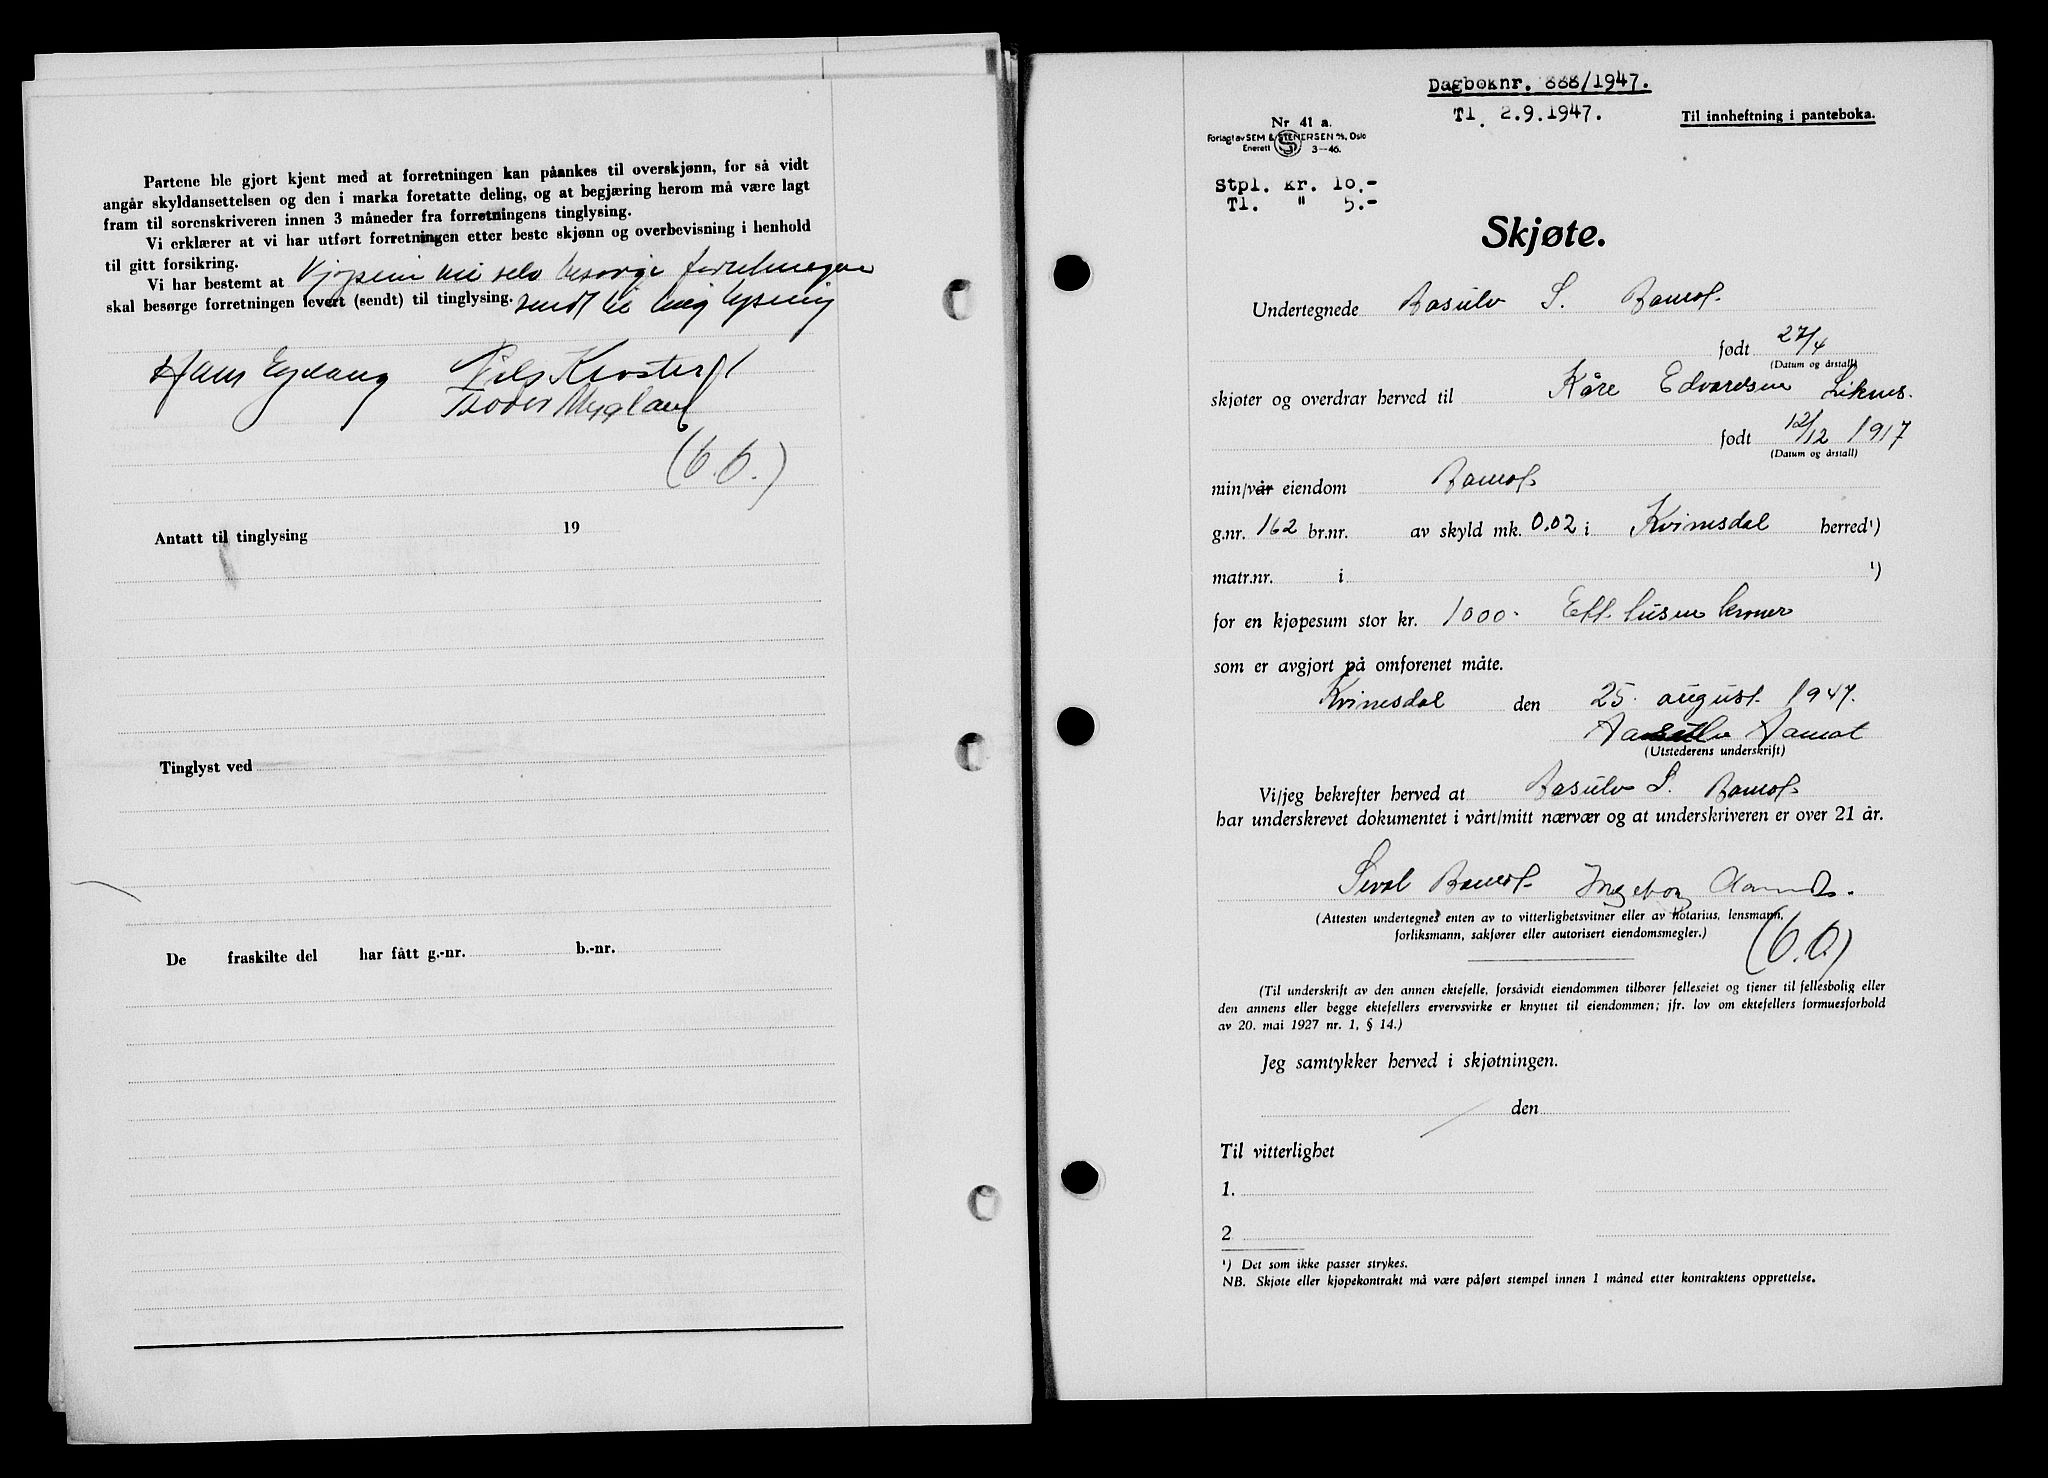 Partene ble gjort kjent med at forretningen kan påankes til overskjønn, for så vidt
angår skyldansettelsen og den i marka foretatte deling, og at begjæring herom må være lagt
fram til sorenskriveren innen 3 måneder fra forretningens tinglysing.
Vi erklærer at vi har utført forretningen etter beste skjønn og overbevisning i henhold
til gitt forsikring.
Vi har bestemt at Kjøperen vil selv besørge forretningen
skal besørge forretningen levert (sendt) til tinglysing. sendt til tinglysing
Hans Egeland Nils Kloster
Teodor Mygland
(b.b.)
Antatt til tinglysing 19
Tinglyst ved
De fraskilte del har fått g.-nr. b.-nr.
Dagboknr. 888/1947.
Tl. 2.9.1947.
Nr 41 a.
Til innheftning i panteboka.
Forlagt av SEM & STENERSEN A/S, Oslo
Enerett S 3-46.
Stpl. kr. 10.-
Tl. " 5.-
Skjøte.
Undertegnede Aasulv S. Aamot
født 27/4
(Datum og årstall)
skjøter og overdrar herved til Kåre Edvardsen Liknes.
født 12/12 1917
(Datum og årstall)
min/vår eiendom Aamot
g.nr. 162 br.nr. av skyld mk. 0.02 i Kvinesdal herred¹)
matr.nr. i ¹)
for en kjøpesum stor kr. 1000.- Ett tusen kroner
som er avgjort på omforenet måte.
Kvinesdal den 25. august 1947.
Aasulv Aamot
(Utstederens underskrift)
Vi/jeg bekrefter herved at Aasulv S. Aamot
har underskrevet dokumentet i vårt/mitt nærvær og at underskriveren er over 21 år.
Sival Aamot Ingeborg Aamot.
(Attesten undertegnes enten av to vitterlighetsvitner eller av notarius, lensmann,
forliksmann, sakfører eller autorisert eiendomsmegler.)
(b.b.)
(Til underskrift av den annen ektefelle, forsåvidt eiendommen tilhører felleseiet og tjener til fellesbolig eller
den annens eller begge ektefellers ervervsvirke er knyttet til eiendommen; jfr. lov om ektefellers formuesforhold
av 20. mai 1927 nr. 1, § 14.)
Jeg samtykker herved i skjøtningen.
den
Til vitterlighet
1.
2
¹) Det som ikke passer strykes.
NB. Skjøte eller kjøpekontrakt må være påført stempel innen 1 måned etter kontraktens opprettelse.